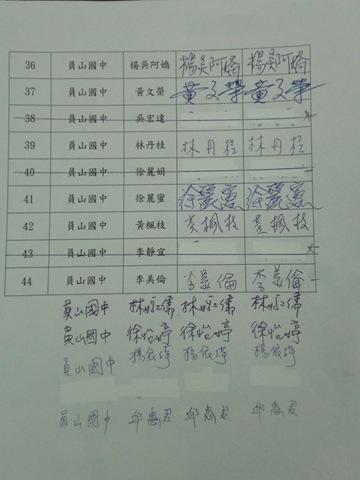 36 員山國中 楊吳阿嬌 楊吳阿嬌 楊吳阿嬌
37 員山國中 黃文榮 黃文榮 黃文榮
38 員山國中 吳宏達
39 員山國中 林丹桂 林丹桂 林丹桂
40 員山國中 徐麗娟
41 員山國中 徐麗蜜 徐麗蜜 徐麗蜜
42 員山國中 黃楓枝 黃楓枝 黃楓枝
43 員山國中 李靜宜
44 員山國中 李美倫 李美倫 李美倫
員山國中 林詠儒 林詠儒 林詠儒
員山國中 徐怡婷 徐怡婷 徐怡婷
員山國中
員山國中